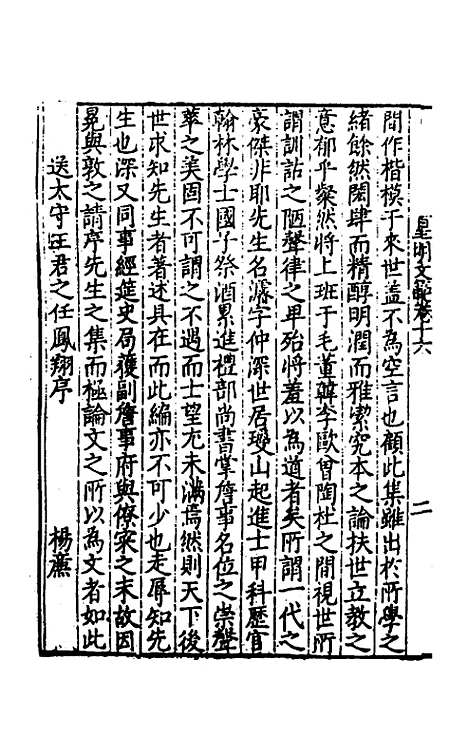 皇明文衡卷十六
二
間作楷模于來世蓋不為空言也顧此集雖出於所學之
緒餘然閎肆而精醇明潤而雅潔究本之論扶世立教之
意郁乎粲然將上班于毛董韓李歐曾陶杜之間視世所
謂訓詁之陋聲律之卑殆將羞以為道者矣所謂一代之
豪傑非耶先生名濂字仲深世居瓊山起進士甲科歷官
翰林學士國子祭酒累進禮部尚書掌詹事名位之崇聲
華之美固不可謂之不遇而士望尤未滿焉然則天下後
世求知先生者著述具在而此編亦不可少也走辱知先
生也深又同事經筵史局獲副詹事府與僚寀之末故因
晃與敦之請序先生之集而極論文之所以為文者如此
送太守汪君之任鳳翔序
楊廉